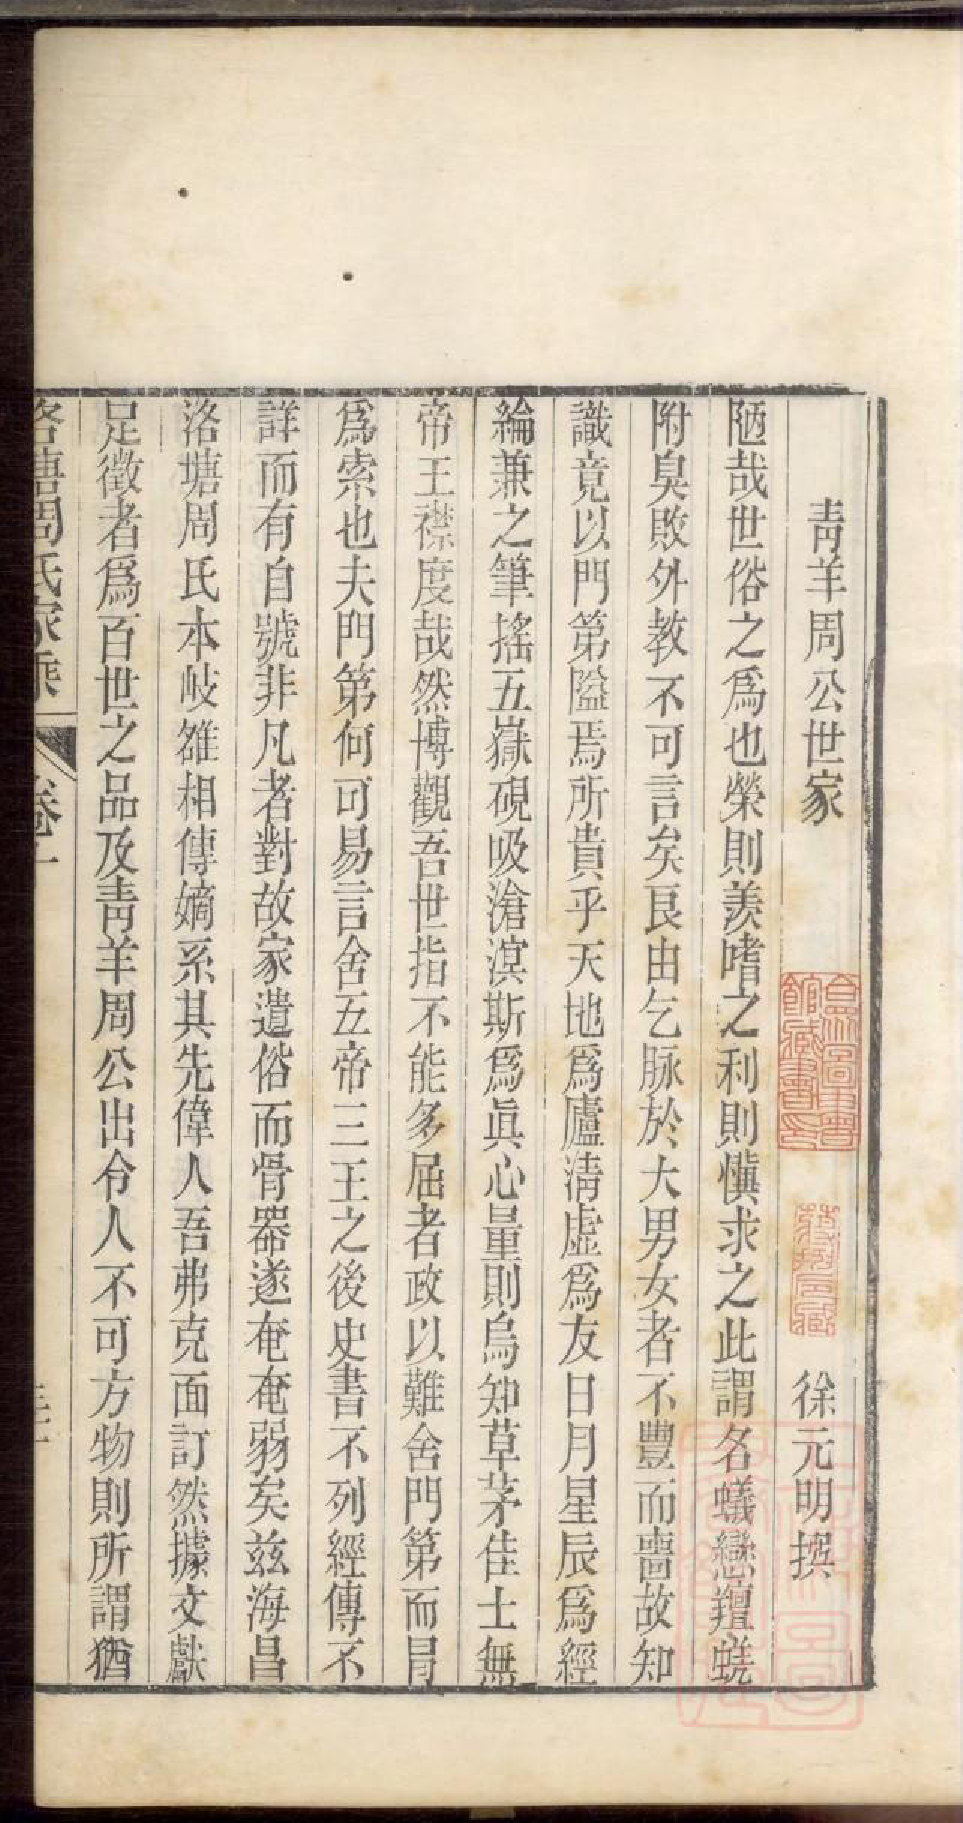 青羊周公世家
徐元明撰
陋哉世俗之爲也榮則羨嗜之利則愼求之此謂名蟻戀羶蟯
附臭敗外教不可言矣艮由乞脉於大男女者不豐而嗇故知
識竟以門第隘焉所貴乎天地爲廬淸虛爲友日月星辰爲經
綸兼之筆搖五嶽硯吸滄溟斯爲眞心量則烏知草茅佳士無
帝王襟度哉然博觀吾世指不能多屈者政以難舍門第而冐
爲索也夫門第何可易言舍五帝三王之後史書不列經傳不
詳而有自號非凡者對故家遺俗而骨器遂奄奄弱矣茲海昌
洛塘周氏本岐雒相傳嫡系其先偉人吾弗克面訂然據文獻
足徵者爲百世之品及靑羊周公出令人不可方物則所謂猶
洛塘周氏家乘
卷十